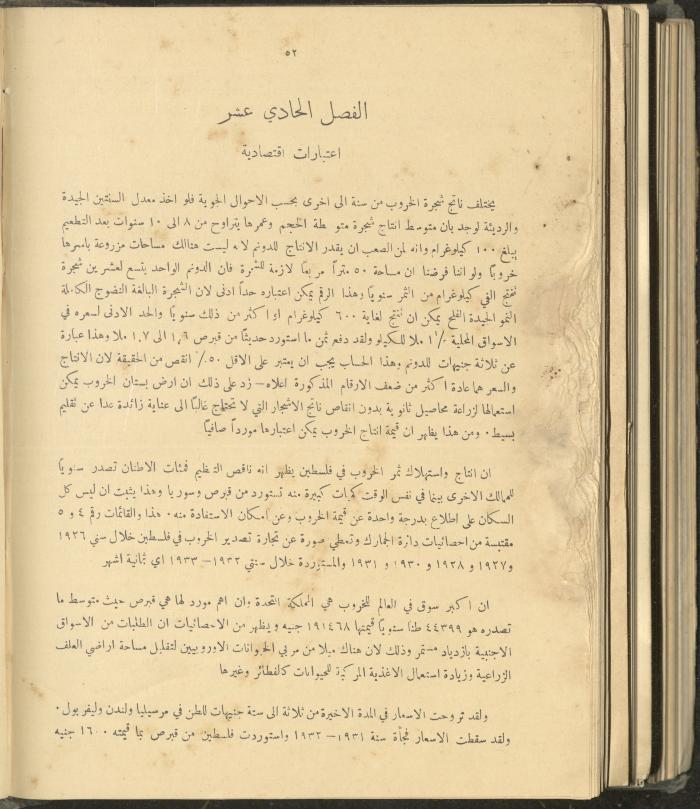 ٥٢
الفصل الحادي عشر
اعتبارات اقتصادية
يختلف ناتج شجرة الخروب من سنة الى اخرى بحسب الاحوال الجوية فلو اخذ معدل السنتين الجيدة
والرديئة لوجد بان متوسط انتاج شجرة متوسطة الحجم وعمرها يتراوح من ٨ الى ١٠ سنوات بعد التطعيم
يبلغ ١٠٠ كيلوغرام وانه لمن الصعب ان يقدر الانتاج للدونم لانه ليست هنالك مساحات مزروعة باسرها
خروباً ولو اننا فرضنا ان مساحة ٥٠ متراً مربعاً لازمة للشجرة فان الدونم الواحد يتسع لعشرين شجرة
تنتج الفي كيلوغرام من الثمر سنوياً وهذا الرقم يمكن اعتباره حداً ادنى لان الشجرة البالغة النضوج الكاملة
النمو الجيدة الفلح يمكن ان تنتج لغاية ٦٠٠ كيلوغرام او اكثر من ذلك سنوياً والحد الادنى لسعره في
الاسواق المحلية ملا للكيلو ولقد دفع ثمن ما استورد حديثاً من قبرص ١,٦ الى ١,٧ ملا وهذا عبارة
عن ثلاثة جنيهات للدونم وهذا الحساب يجب ان يعتبر على الاقل ٥٠٪ انقص من الحقيقة لان الانتاج
والسعر هما عادة اكثر من ضعف الارقام المذكورة اعلاه – زد على ذلك ان ارض بستان الخروب يمكن
استعمالها لزراعة محاصيل ثانوية بدون انقاص ناتج الاشجار التي لا تحتاج غالباً الى عناية زائدة عدا عن تقليم
بسيط ٠ ومن هذا يظهر ان قيمة انتاج الخروب يمكن اعتبارها مورداً صافياً
ان انتاج واستهلاك ثمر الخروب في فلسطين يظهر انه ناقص التنظيم فمئات الاطنان تصدر سنوياً
للممالك الاخرى بينما في نفس الوقت كميات كبيرة منه تستورد من قبرص وسوريا وهذا يثبت ان ليس كل
السكان على اطلاع بدرجة واحدة عن قيمة الخروب وعن امكان الاستفادة منه ٠ هذا والقائمات رقم ٤ و ٥
مقتبسة من احصائيات دائرة الجمارك وتعطي صورة عن تجارة تصدير الخروب في فلسطين خلال سني ١٩٢٦
و١٩٢٧ و ١٩٢٨ و ١٩٣٠ و ١٩٣١ والمستوردة خلال سنتي ١٩٣٢ – ١٩٣٣ اي ثمانية اشهر
ان اكبر سوق في العالم للخروب هي المملكة المتحدة وان اهم مورد لها هي قبرص حيث متوسط ما
تصدره هو ٤٤٣٩٩ طناً سنوياً قيمتها ١٩١٤٦٨ جنيه ويظهر من الاحصائيات ان الطلبات من الاسواق
الاجنبية بازدياد مستمر وذلك لان هناك ميلا من مربي الحيوانات الاوروبيين لتقليل مساحة اراضي العلف
الزراعية وزيادة استعمال الاغذية المركزة للحيوانات كالفطائر وغيرها
ولقد تروحت الاسعار في المدة الاخيرة من ثلاثة الى ستة جنيهات للطن في مرسيليا ولندن وليفربول ٠
ولقد سقطت الاسعار فجأة سنة ١٩٣١ – ١٩٣٢ واستوردت فلسطين من قبرص بما قيمته ١٦٠٠ جنيه